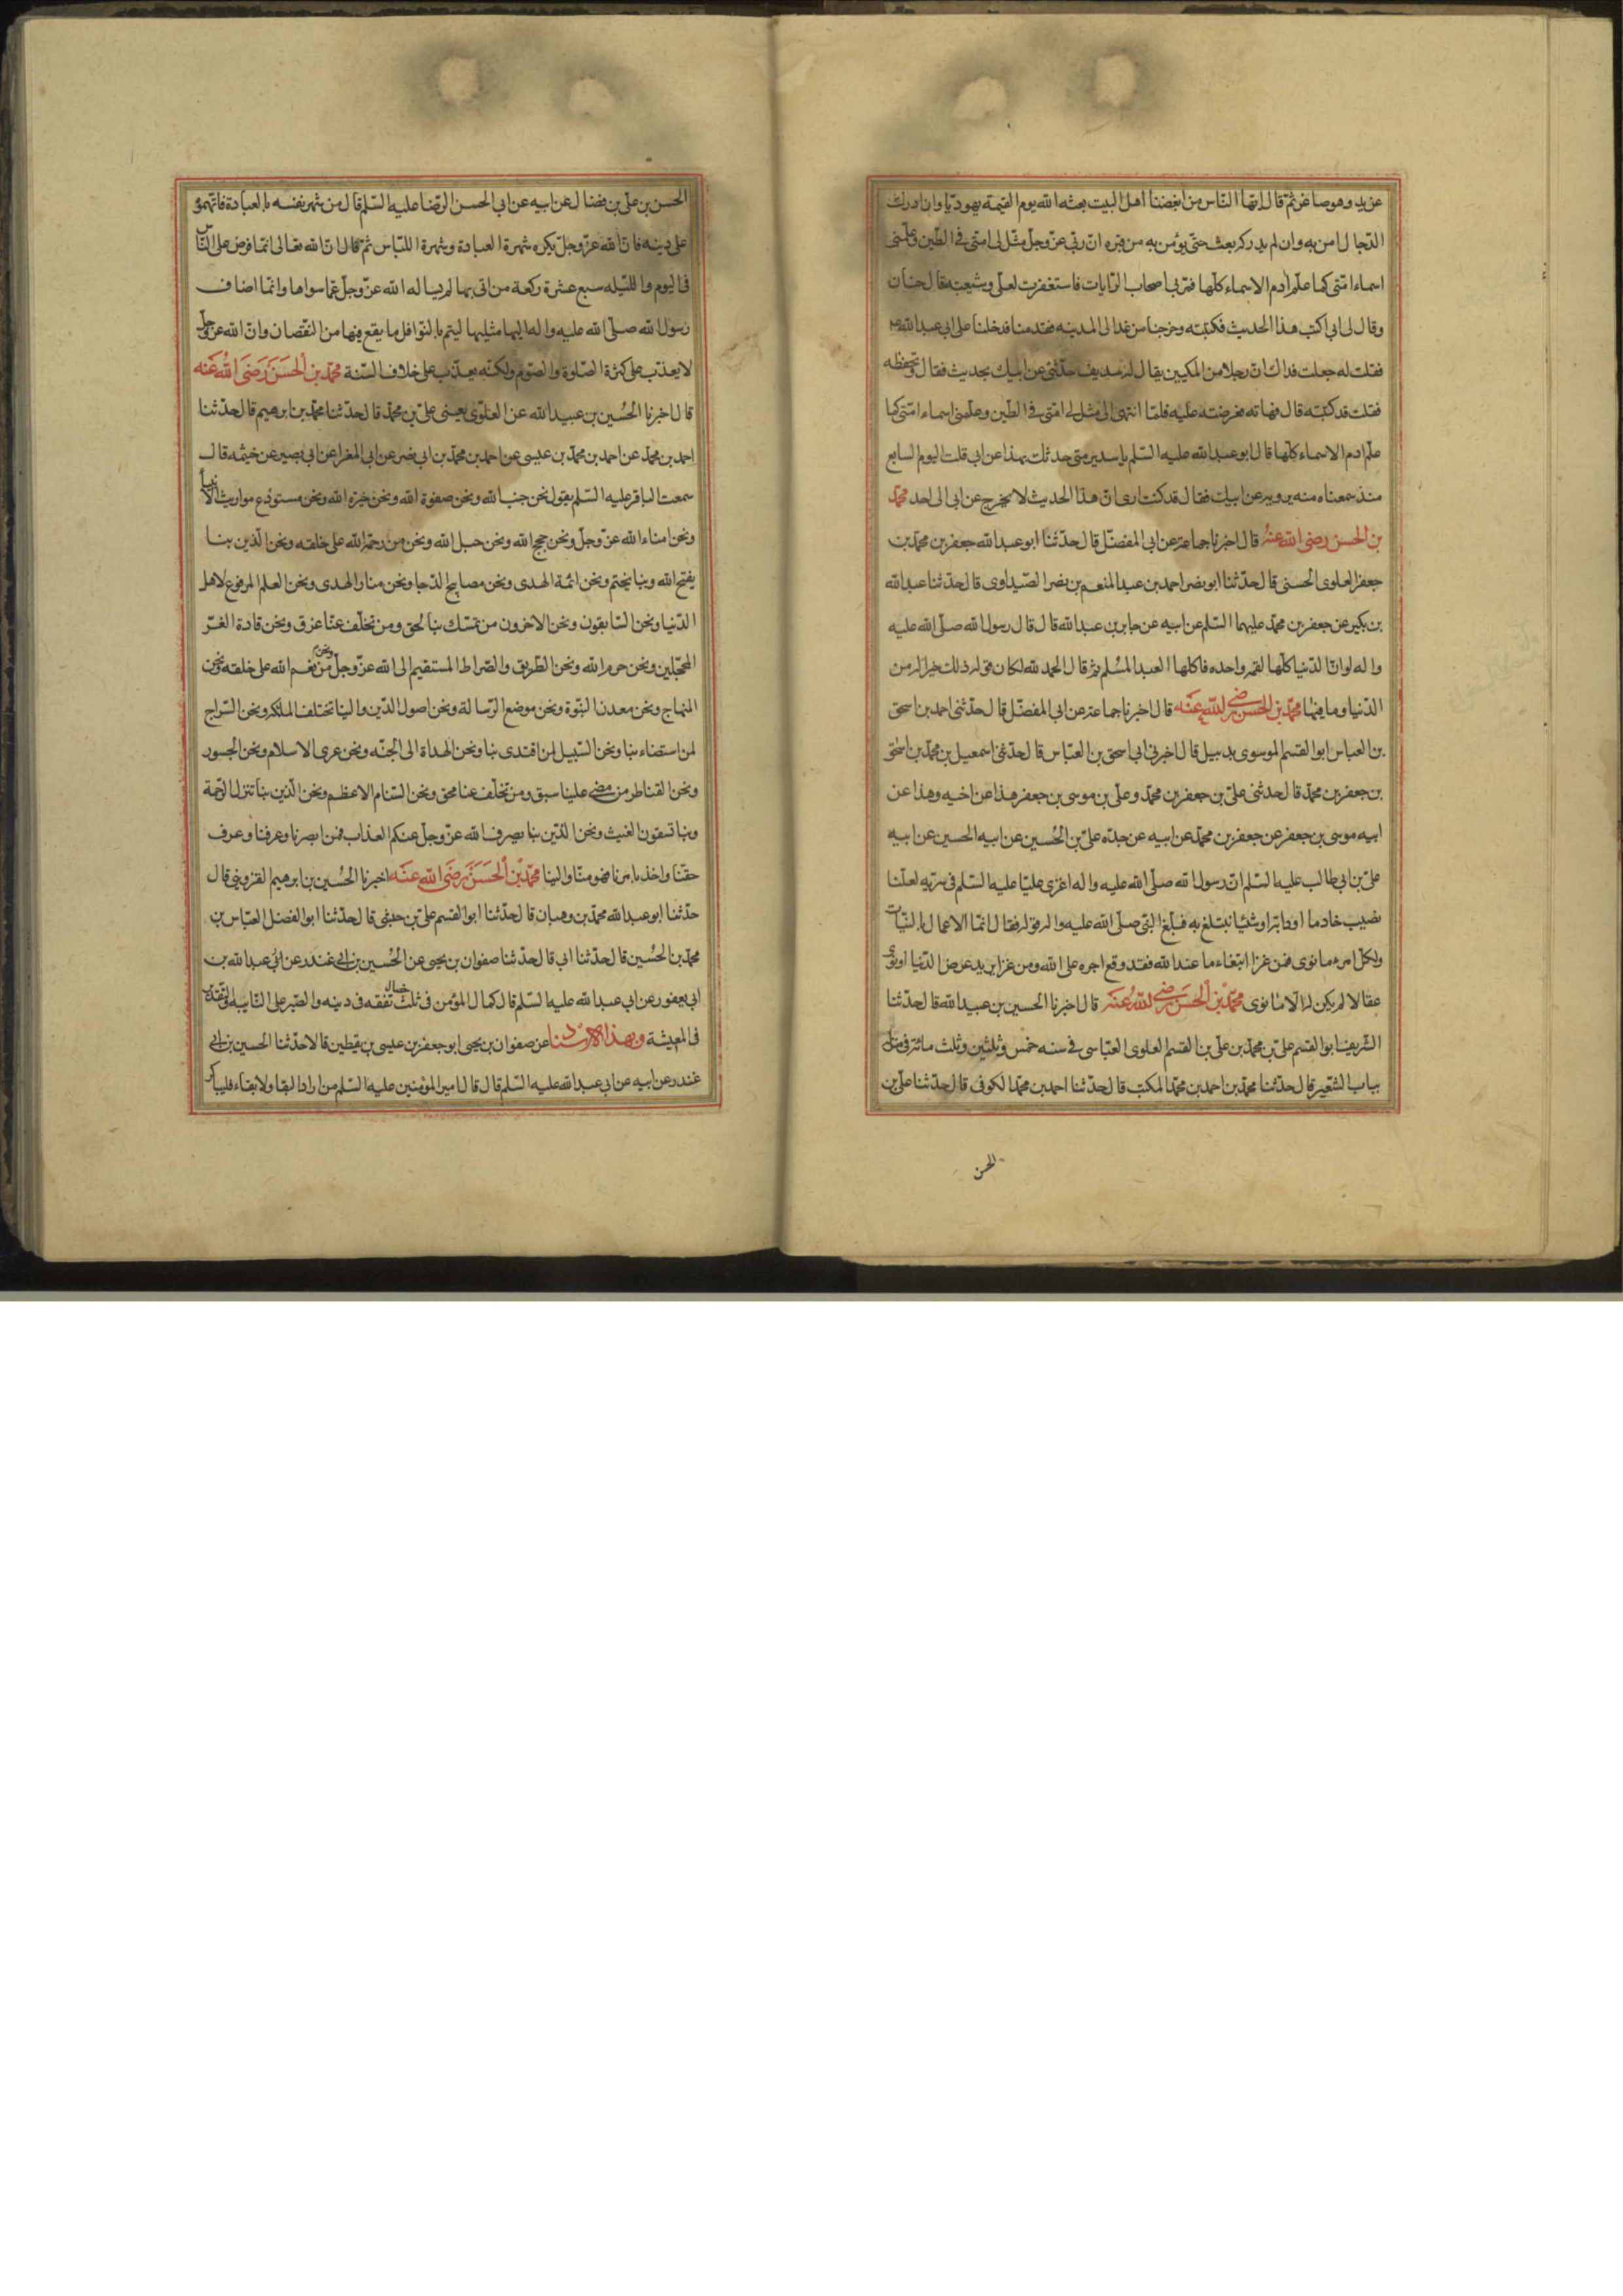 عزيد وهو صاعن ثم قال ايها الناس من ابغضنا اهل البيت بعثه الله يوم القيمة يهوديا وان ادرك
الدجال امن به وان لم يدركه بعث حتى يؤمن به من قبره ان ربى عز وجل مثل لى امتى فى الطين وعلمنى
اسماء امتى كما علم ادم الاسماء كلها فمر بى اصحاب الرايات فاستغفرت لعلى وشيعته قال حنان
وقال لى ابى اكتب هذا الحديث فكتبته وخرجنا من غد الى المدينه فقدمنا فدخلنا على ابى عبد الله
فقلت له جعلت فداك ان رجلا من المكيين يقال له سديف حدثنى عن ابيك بحديث فقال وتحفظه
فقلت قد كتبته قال فهاته فعرضته عليه فلما انتهى الى مثل لى امتى فى الطين وعلمنى اسماء امتى كما
علم ادم الاسماء كلها قال ابو عبد الله عليه السلم يا سدير متى حدثك بهذا عن ابى قلت اليوم السابع
منذ سمعناه منه يرويه عن ابيك فقال قد كنت ارى ان هذا الحديث لا يخرج عن ابى الى احد محمد
بن الحسن رضى الله عنه قال اخبرنا جماعة عن ابى المفضل قال حدثنا ابو عبد الله جعفر بن محمد بن
جعفر العلوى الحسنى قال حدثنا ابو نصر احمد بن عبد المنعم بن نصر الصيداوى قال حدثنا عبد الله
بن بكير عن جعفر بن محمد عليهما السلم عن ابيه عن جابر بن عبد الله قال قال رسول الله صلى الله عليه
واله لو ان الدنيا كلها لقمه واحده فاكلها العبد المسلم ثم قال الحمد لله لكان قوله ذلك خيرا له من
الدنيا وما فيها محمد بن الحسن رضى الله عنه قال اخبرنا جماعة عن ابى المفضل قال حدثنى احمد بن اسحق
بن العباس ابو القسم الموسوى بدبيل قال اخبرنى ابى اسحق بن العباس قال حدثنى اسمعيل بن محمد بن اسحق
بن جعفر بن محمد قال حدثنى على بن جعفر بن محمد وعلى بن موسى بن جعفر هذا عن اخيه وهذا عن
ابيه موسى بن جعفر عن جعفر بن محمد عن ابيه عن جده على بن الحسين عن ابيه الحسين عن ابيه
على بن ابى طالب عليه السلم ان رسول الله صلى الله عليه واله اغزى عليا عليه السلم فى سريه لعلنا
نصيب خادما او دابة او شيئا نبتلغ به فبلغ النبى صلى الله عليه واله قوله فقال انما الاعمال بالنيات
ولكل امرء ما نوى فمن غزا ابتغاء ما عند الله فقد وقع اجره على الله ومن غزا يريد عرض الدنيا او نوى
عقالا لم يكن له الا ما نوى محمد بن الحسن رضى الله عنه قال اخبرنا الحسين بن عبيد الله قال حدثنا
الشريف ابو القسم على بن محمد بن على بن القسم العلوى العباسى فى سنه خمس وثلثين وثلث مائة فى منزله
بباب الشعير قال حدثنا محمد بن احمد بن محمد المكتب قال حدثنا احمد بن محمد الكوفى قال حدثنا على بن
الحسن
الحسن بن على بن فضال عن ابيه عن ابى الحسن الرضا عليه السلم قال من شهر نفسه بالعبادة فاتهموه
على دينه فان الله عز وجل يكره شهرة العبادة وشهرة اللباس ثم قال ان الله تعالى انما فرض على الناس
فى اليوم والليله سبع عشرة ركعة من اتى بها لم يساله الله عز وجل عما سواها وانما اضاف
رسول الله صلى الله عليه واله اليها مثليها ليتم بالنوافل ما يقع فيها من النقصان وان الله عز وجل
لا يعذب على كثرة الصلوة والصوم ولكنه يعذب على خلاف السنة محمد بن الحسن رضى الله عنه
قال اخبرنا الحسين بن عبيد الله عن العلوى يعنى على بن محمد قال حدثنا محمد بن ابرهيم قال حدثنا
احمد بن محمد عن احمد بن محمد بن عيسى عن احمد بن محمد بن ابى نصر عن ابى المغرا عن ابى بصير عن خيثمه قال
سمعت الباقر عليه السلم يقول نحن جنب الله ونحن صفوة الله ونحن خيرة الله ونحن مستودع مواريث الانبيا
ونحن امناء الله عز وجل ونحن حجج الله ونحن حبل الله ونحن من رحمة الله على خلقه ونحن الذين بنا
يفتح الله وبنا يختم ونحن ائمة الهدى ونحن مصابيح الدجا ونحن منار الهدى ونحن العلم المرفوع لاهل
الدنيا ونحن السابقون ونحن الاخرون من تمسك بنا لحق ومن تخلف عنا غرق ونحن قادة الغر
المحجلين ونحن حرم الله ونحن الطريق والصراط المستقيم الى الله عز وجل ونحن من نعم الله على خلقه ونحن
المنهاج ونحن معدن النبوة ونحن موضع الرسالة ونحن اصول الدين والينا تختلف الملئكه ونحن السراج
لمن استضاء بنا ونحن السبيل لمن اقتدى بنا ونحن الهداة الى الجنه ونحن عرى الاسلام ونحن الجسور
ونحن القناطر من مضى علينا سبق ومن تخلف عنا محق ونحن السنام الاعظم ونحن الذين بنا تنزل الرحمة
وبنا تسقون الغيث ونحن الذين بنا يصرف الله عز وجل عنكم العذاب فمن ابصرنا وعرفنا وعرف
حقنا واخذ بامرنا فهو منا والينا محمد بن الحسن رضى الله عنه اخبرنا الحسين بن ابرهيم القزوينى قال
حدثنا ابو عبد الله محمد بن وهبان قال حدثنا ابو القسم على بن حبشى قال حدثنا ابو الفضل العباس بن
محمد بن الحسين قال حدثنا ابى قال حدثنا صفوان بن يحيى عن الحسين بن ابى غندر عن ابى عبد الله بن
ابى يعفور عن ابى عبد الله عليه السلم قال كمال المؤمن فى ثلث خصال تفقه فى دينه والصبر على النايبه والتقدير
فى المعيشة وبهذا الاسناد عن صفوان بن يحيى ابو جعفر بن عيسى بن يقطين قالا حدثنا الحسين بن ابى
غندر عن ابيه عن ابى عبد الله عليه السلم قال قال امير المؤمنين عليه السلم من اراد البقا ولا بقاء فليباكر